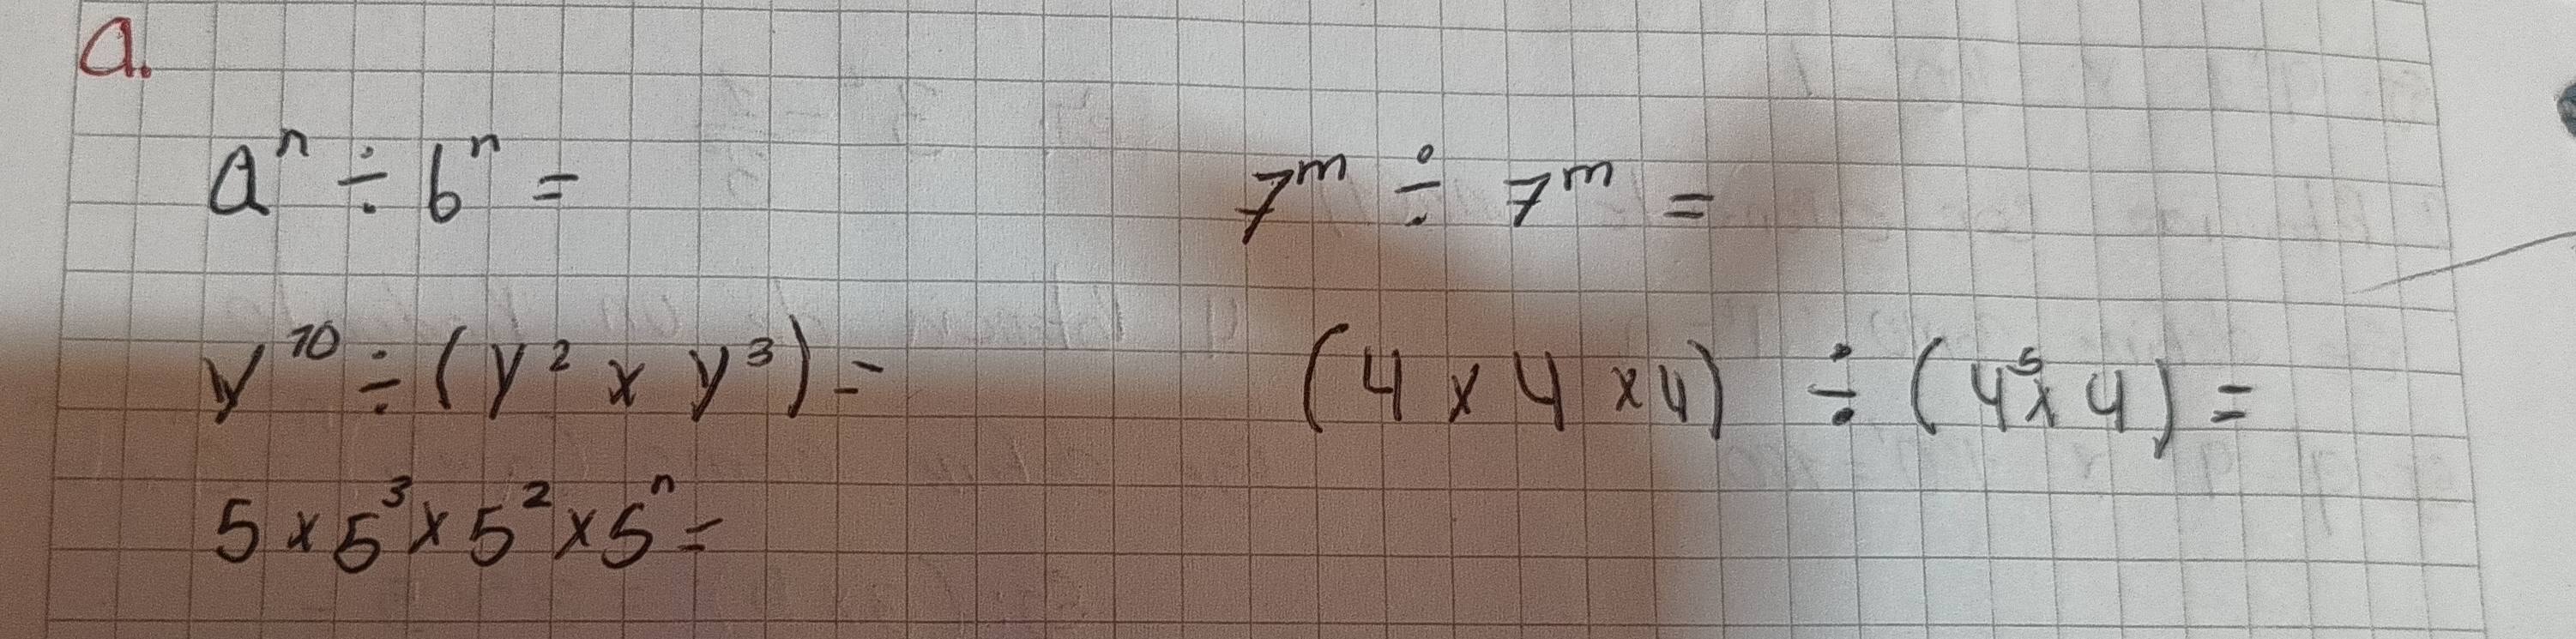 a.
aⁿ ÷ bⁿ = 7ᵐ ÷ 7ᵐ =
y¹⁰ ÷ (y² x y³) = (4 x 4 x 4) ÷ (4⁵ x 4) =
5 x 5³ x 5² x 5ⁿ =